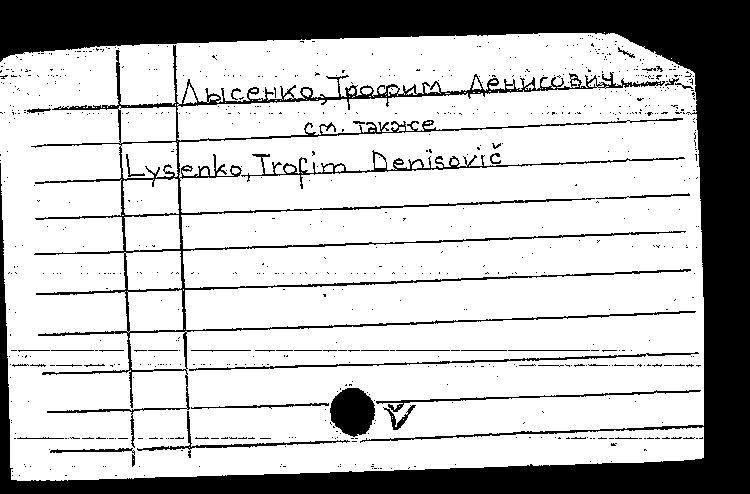 Лысенко, Трофим Денисович.
см. также
Lysenko, Trofim Denisovič
V